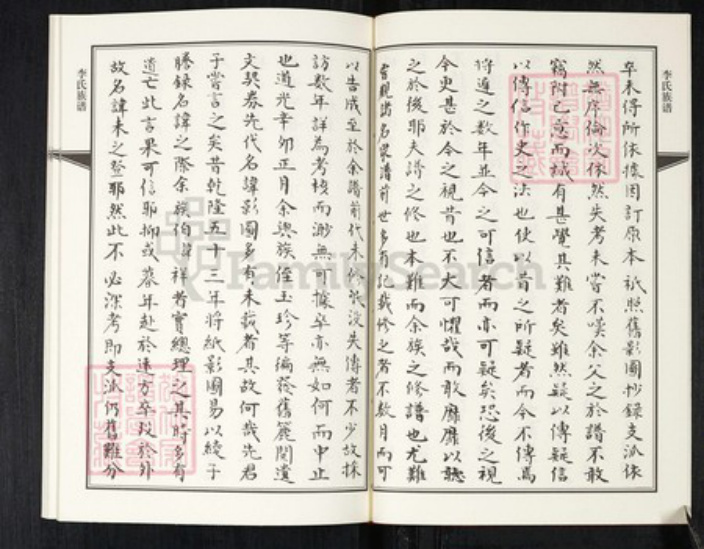 李氏族谱
卒未得所依據因訂原本祇照舊影圖抄錄支派依
然無序倫次依然失考未嘗不嘆余父之於譜不敢
竊附己意而誠有甚覺其難者矣雖然疑以傳疑信
以傳信作史之法也使以昔之所疑者而今不傳焉
將過之數年並今之可信者而亦可疑矣恐後之視
今更甚於今之視昔也不大可懼哉而敢靡靡以聽
之於後耶夫譜之修也本難而余族之修譜也尤難
嘗覩諸名家譜前世多有記載修之者不數月而可
以告成至於余譜前代未修祇沒失傳者不少故採
訪數年詳為考核而渺無可據卒亦無如何而中止
也道光辛卯正月余與族侄玉珍等編發舊簏閱遺
文契券先代名諱影圖多有未載者其故何哉先君
子嘗言之矣昔乾隆五十三年將紙影圖易以綾子
謄錄名諱之際余族伯諱祥者實總理之其時多有
遺亡此言果可信耶抑或暮年赴於遠方卒歿於外
故名諱未之登耶然此不必深考即支派仍舊難分
李氏族谱
FamilySearch